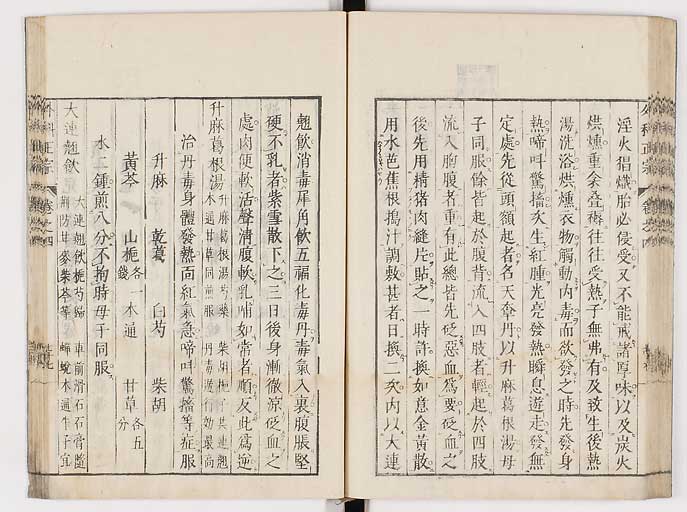 淫火猖熾胎必侵受又不能戒諸厚味以及炭火
烘燻重衾疊褥往往受熱子無弗有及致生後熱
湯洗浴烘燻衣物觸動内毒而欲發之時先發身
熱啼叫驚搐次生紅腫光亮發熱瞬息遊走發無
定處先從頭額起者名天奎丹以升麻葛根湯母
子同服餘皆起於腹背流入四肢者輕起於四肢
流入胸腹者重有此總皆先砭惡血爲要砭血之
後先用精猪肉縫片貼之一時許換如意金黃散
用水芭蕉根搗汁調敷甚者日換二次内以大連
翹飲消毒犀角飲五福化毒丹毒氣入裏腹脹堅
硬不乳者紫雪散下之三日後身漸徹涼砭血之
處肉便軟活聲清腹軟乳哺如常者順反此爲逆
升麻葛根湯 升麻葛根湯芍藥 柴胡梔子共連翹
木通甘草同煎服 丹毒遊行効最高
治丹毒身體發熱面紅氣急啼叫驚搐等症服
升麻 乾葛 白芍 柴胡
黃芩 山梔各一錢 木通 甘草各五分
水二鍾煎八分不拘時母子同服
大連翹飲 大連翹飲梔芍歸 車前滑石石膏隨
荊防甘麥柴芩等 蟬蛻木通牛子宜
外科正宗 卷之四